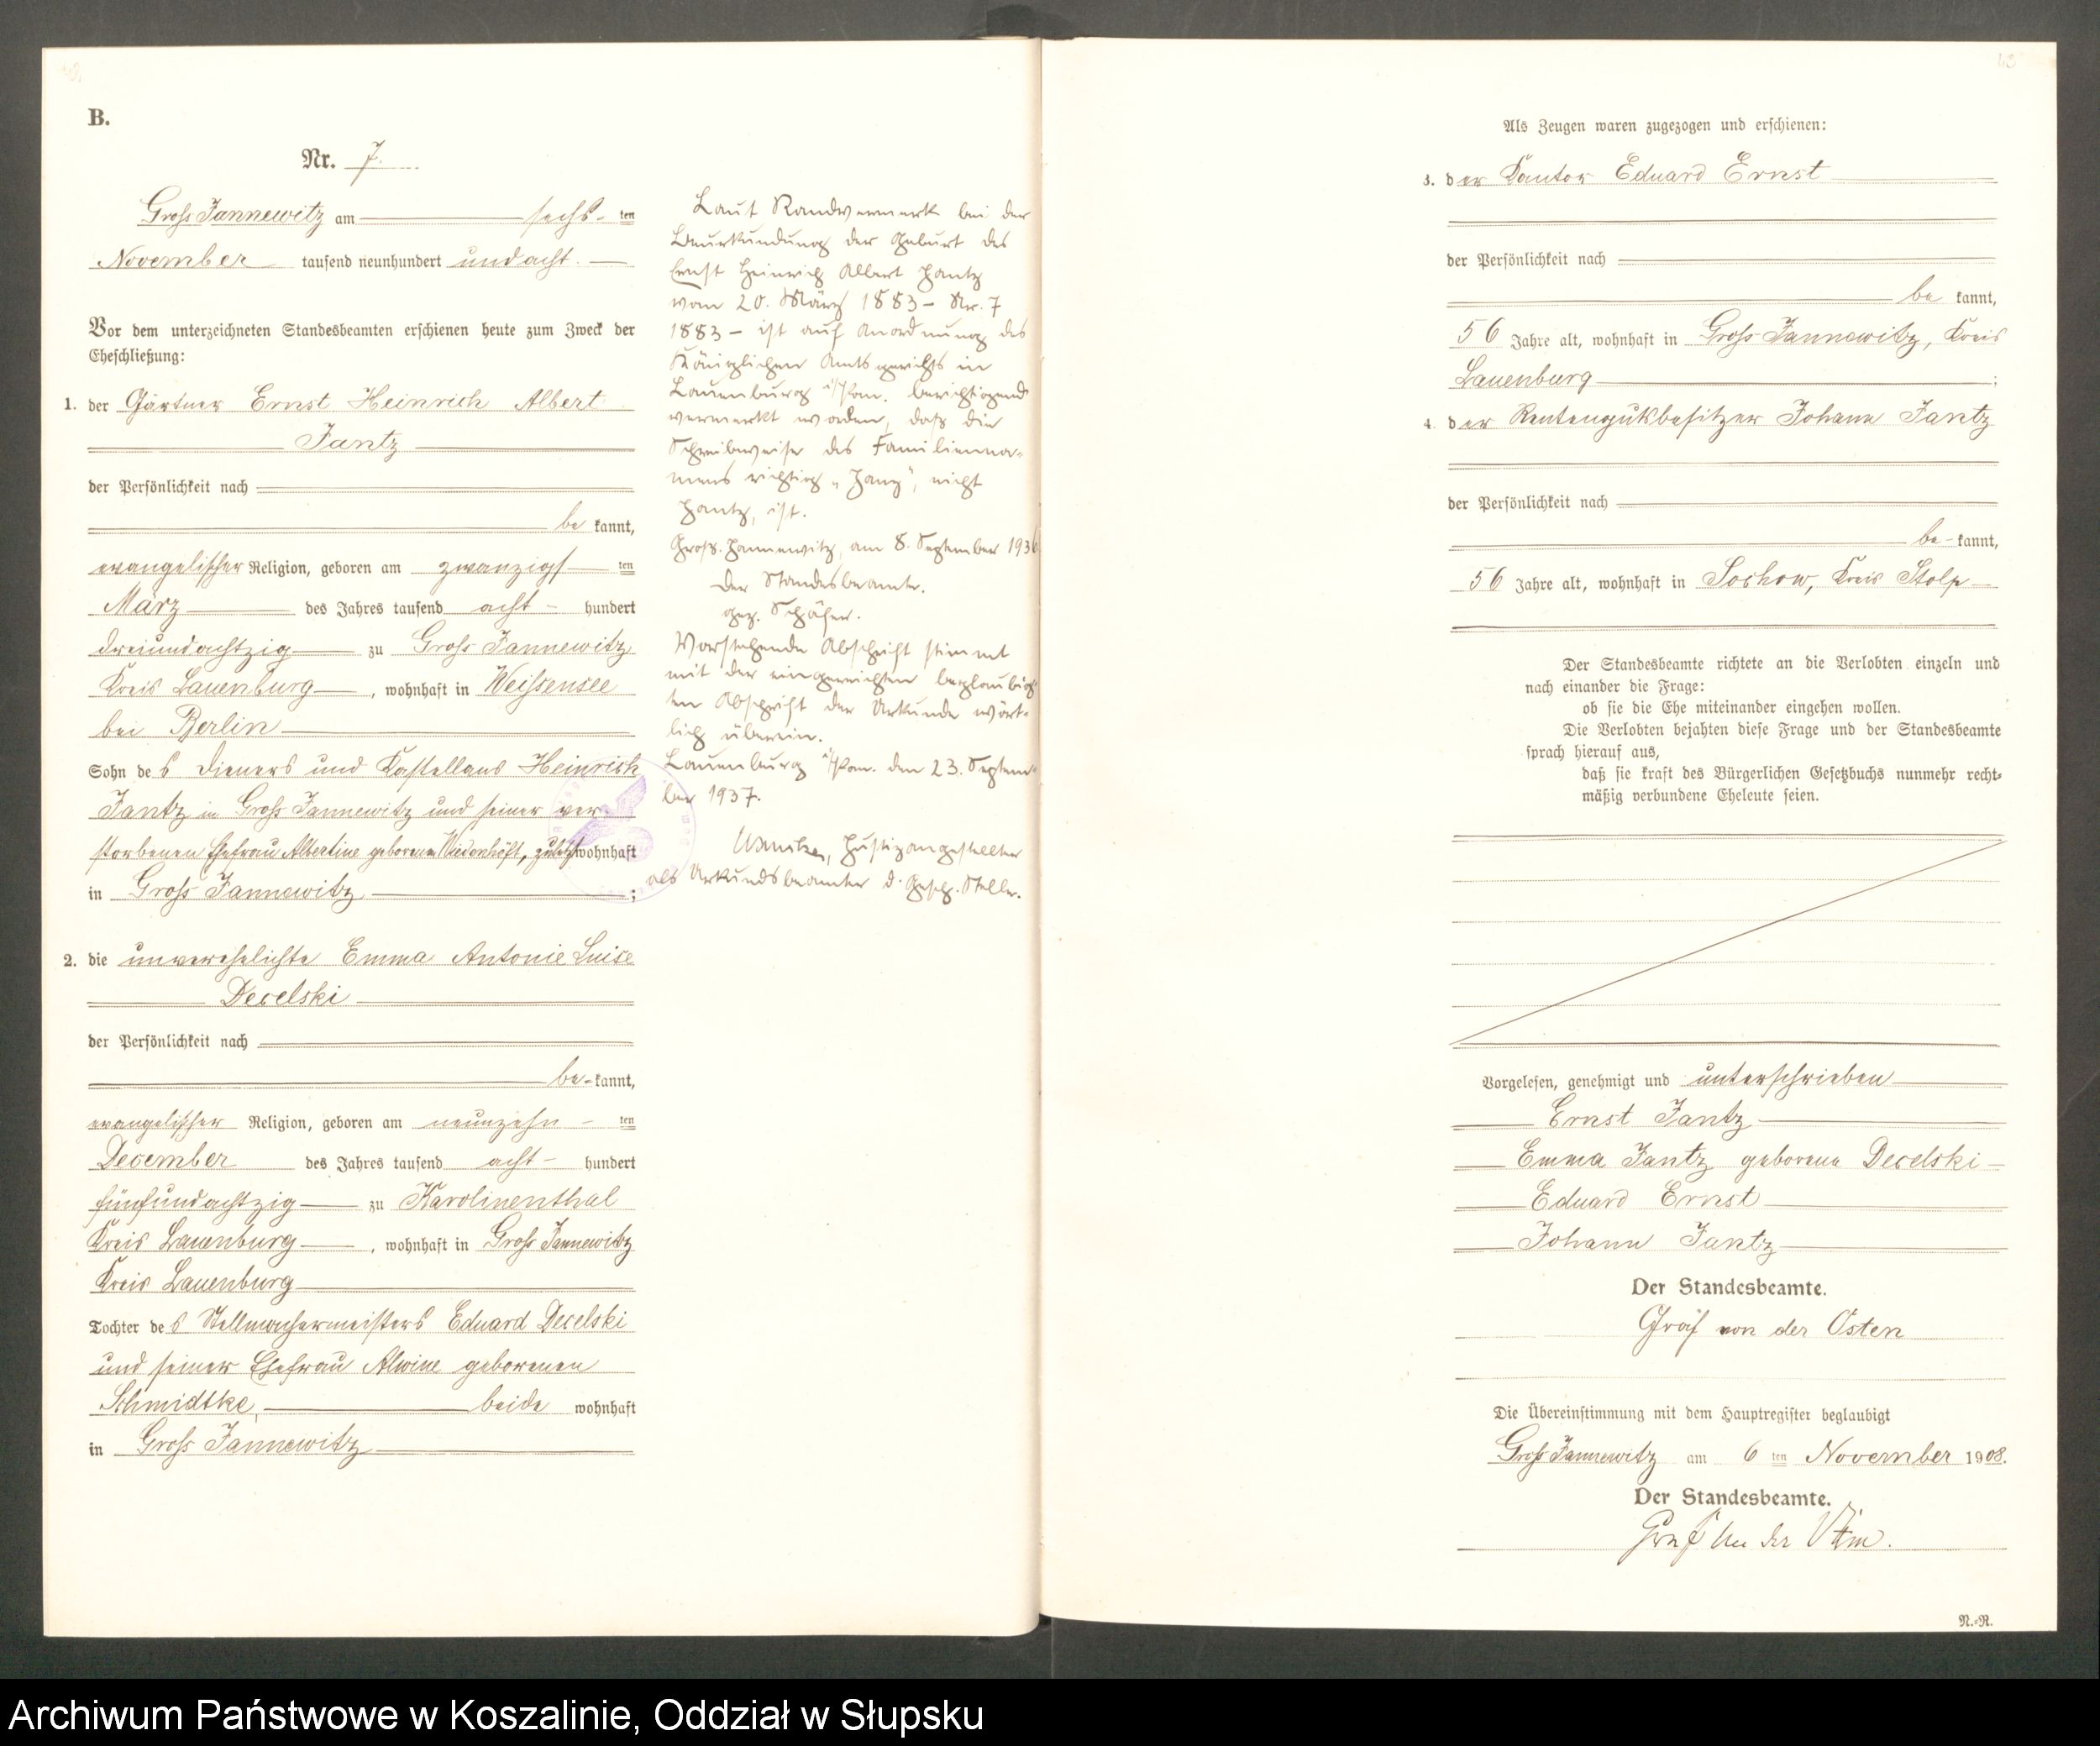 B.
Nr. 7.
Gross Jannewitz am sechs- ten
November tausend neunhundert und acht.
Vor dem unterzeichneten Standesbeamten erschienen heute zum Zweck der
Eheschließung:
1. der Gärtner Ernst Heinrich Albert
Jantz
der Persönlichkeit nach
be kannt,
evangelischer Religion, geboren am zwanzigs ten
März des Jahres tausend acht- hundert
dreiundachtzig zu Gross Jannewitz
Kreis Lauenburg, wohnhaft in Weissensee
bei Berlin
Sohn des Dieners und Kastellans Heinrich
Jantz in Gross Jannewitz und seiner ver-
storbenen Ehefrau Albertine geborenen Niedenhöft, zuletzt wohnhaft
in Gross Jannewitz;
2. die unverehelichte Emma Antonie Luise
Decelski
der Persönlichkeit nach
be-kannt,
evangelischer Religion, geboren am neunzehn- ten
December des Jahres tausend acht- hundert
fünfundachtzig zu Karolinenthal
Kreis Lauenburg, wohnhaft in Gross Jannewitz
Kreis Lauenburg
Tochter des Stellmachermeisters Eduard Decelski
und seiner Ehefrau Alwine geborenen
Schmidtke, beide wohnhaft
in Gross Jannewitz
Laut Randvermerk bei der
Beurkundung der Geburt des
Ernst Heinrich Albert Jantz
vom 20. März 1883 - Nr. 7
1883 - ist auf Anordnung des
Königlichen Amtsgerichts in
Lauenburg i/Pom. berichtigend
vermerkt worden, daß die
Schreibweise des Familienna-
mens richtig „Janz", nicht
Jantz, ist.
Groß-Jannewitz, am 8. September 1936
Der Standesbeamte.
gez. Schäfer.
Vorstehende Abschrift stimmt
mit der eingereichten beglaubig-
ten Abschrift der Urkunde wört-
lich überein.
Lauenburg i/Pom. den 23. Septem-
ber 1937.
Justizangestellter
als Urkundsbeamter d. Gesch. Stelle.
Als Zeugen waren zugezogen und erschienen:
3. der Kantor Eduard Ernst
der Persönlichkeit nach
be kannt,
56 Jahre alt, wohnhaft in Gross Jannewitz, Kreis
Lauenburg;
4. der Rentengutsbesitzer Johann Jantz
der Persönlichkeit nach
be-kannt,
56 Jahre alt, wohnhaft in Sochow, Kreis Stolp
Der Standesbeamte richtete an die Verlobten einzeln und
nach einander die Frage:
ob sie die Ehe miteinander eingehen wollen.
Die Verlobten bejahten diese Frage und der Standesbeamte
sprach hierauf aus,
daß sie kraft des Bürgerlichen Gesetzbuchs nunmehr recht-
mäßig verbundene Eheleute seien.
Vorgelesen, genehmigt und unterschrieben
Ernst Jantz
Emma Jantz geborene Decelski
Eduard Ernst
Johann Jantz
Der Standesbeamte.
Graf von der Osten
Die Übereinstimmung mit dem Hauptregister beglaubigt
Gross Jannewitz am 6 ten November 1908.
Der Standesbeamte.
Graf von der Osten.
N.-R.
Archiwum Państwowe w Koszalinie, Oddział w Słupsku